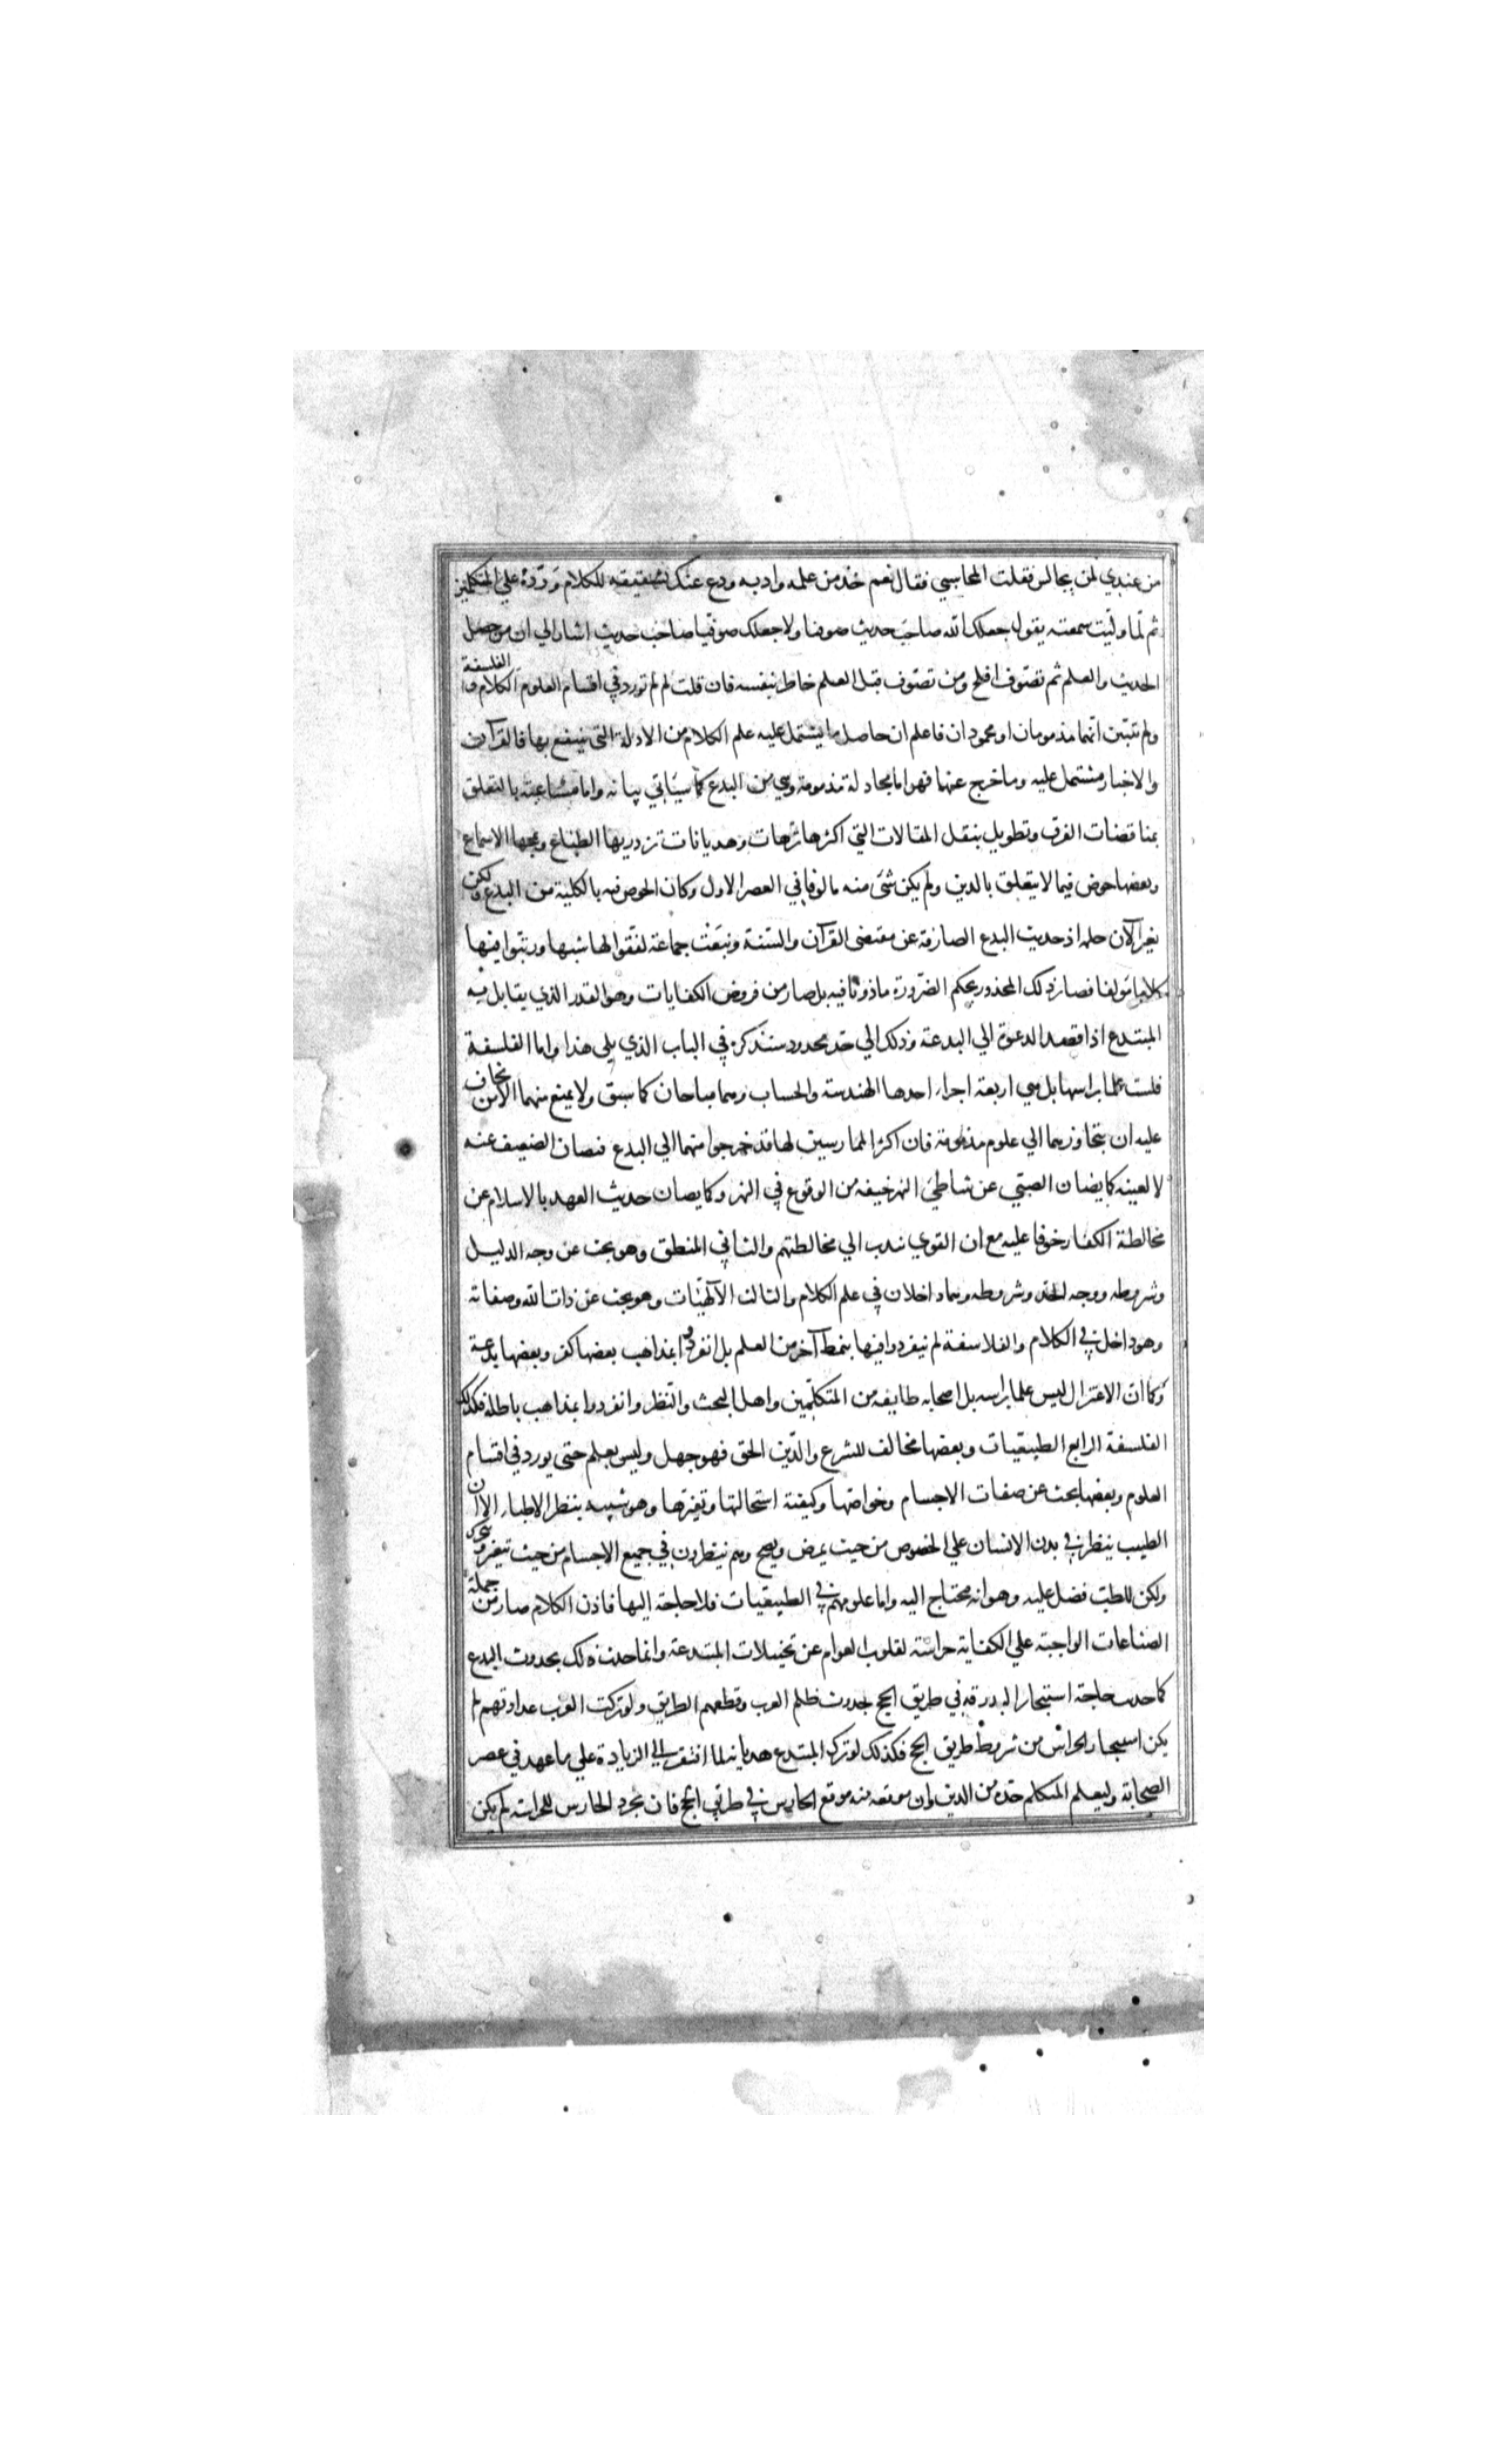 من عندي لمن يجالس فقلت المحاسبي فقال نعم خذ من علمه وادبه ودع عنك تشقيقه للكلام وردّه على المتكلمين
ثم لما ولّيت سمعته يقول جعلك الله صاحب حديث صوفيا ولا جعلك صوفيّا صاحب حديث اشار الي ان من حصل
الحديث والعلم ثم تصوّف افلح ومن تصوّف قبل العلم خاطر بنفسه فان قلت لم لم تورد في اقسام العلوم الكلام والفلسفة
ولم تتبين انهما مذمومان او محمودان فاعلم ان حاصل ما يشتمل عليه علم الكلام من الادلة التي ينتفع بها فالقرآن
والاخبار مشتمل عليه وما خرج عنهما فهو اما مجادلة مذمومة وهي من البدع كما سيأتي بيانه واما مشاغبة بالتعلق
بمناقضات الفرق وتطويل بنقل المقالات التي اكثرها ترهات وهديانات تزدريها الطباع وتمجها الاسماع
وبعضها خوض فيما لا يتعلق بالدين ولم يكن شئ منه مالوفا في العصر الاول وكان الخوض فيه بالكلية من البدع ولكن
تغير الآن حكمه اذ حديث البدع الصارفة عن مقتضى القرآن والسّنة ونبغت جماعة لفّقوا لها شبها ورتبوا فيها
كلاما مولفا فصار ذلك المحذور بحكم الضرورة ماذونا فيه بل صار من فروض الكفايات وهو القدر الذي يقابل فيه
المبتدع اذا قصد الدعوة الي البدعة وذلك الي حد محدود سنذكره في الباب الذي يلي هذا واما الفلسفة
فلست علما براسها بل هي اربعة اجزاء احدها الهندسة والحساب وهما مباحان كما سبق ولا يمنع منهما الا من يخاف
عليه ان يتجاوزهما الي علوم مذمومة فان اكثر الممارسين لها قد خرجوا منهما الي البدع فيصان الضعيف عنه
لا لعينه كما يصان الصبيّ عن شاطئ النهر خيفة من الوقوع في النهر وكما يصان حديث العهد بالاسلام عن
مخالطة الكفار خوفا عليه مع ان القوي ندب الي مخالطتهم والثاني المنطق وهو بحث عن وجه الدليل
وشروطه ووجه الحد وشروطه وهما داخلان في علم الكلام والثالث الالهيّات وهو بحث عن ذات الله وصفاته
وهو داخل في الكلام والفلاسفة لم ينفردوا فيها بنمط آخر من العلم بل انفردوا بمذاهب بعضها كفر وبعضها بدعة
وكما ان الاعتزال ليس علما براسه بل اصحابه طايفة من المتكلّمين واهل البحث والنظر وانفردوا بمذاهب باطلة فكذلك
الفلسفة الرابع الطبيعيات وبعضها مخالف للشرع والدّين الحق فهو جهل وليس بعلم حتى يورد في اقسام
العلوم وبعضها بحث عن صفات الاجسام وخواصّها وكيفية استحالتها وتغيّرها وهو شبيه بنظر الاطباء الا ان
الطبيب ينظر في بدن الانسان علي الخصوص من حيث يمرض ويصح وهم ينظرون في جميع الاجسام من حيث تتغير وتتحرك
ولكن للطبّ فضل عليه وهو انه محتاج اليه واما علومهم في الطبيعيات فلا حاجة اليها فاذن الكلام صار من جملة
الصناعات الواجبة علي الكفاية حراسة لقلوب العوام عن تخييلات المبتدعة وانما حدث ذلك بحدوث البدع
كما حدث حاجة استيجار البدرقة في طريق الحج بحدوث ظلم العرب وقطعهم الطريق ولو تركت العرب عداوتهم لم
يكن استيجار الحراس من شروط طريق الحج فكذلك لو ترك المبتدع هديانه لما افتقر الي الزيادة علي ما عهد في عصر
الصحابة وليعلم المتكلم حده من الدين وان موقعه منه موقع الحارس في طريق الحج فان تجرد الحارس للحراسة لم يكن